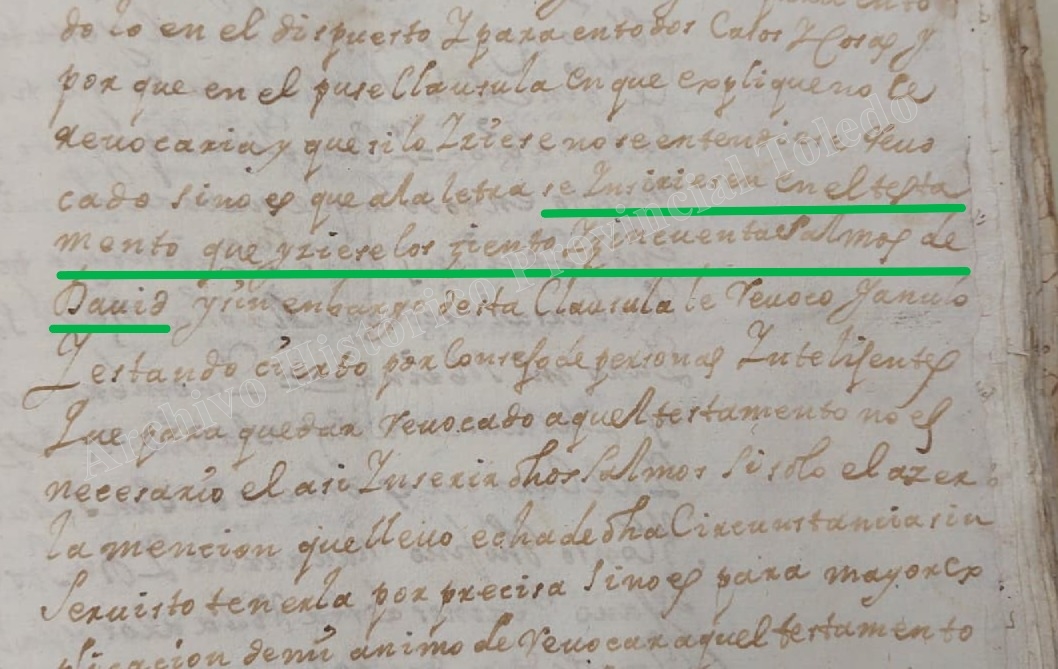 do lo en el dispuesto Y para en todos Casos Y Cosas y
por que en el puse Clausula en que explique no le
revocaria y que si lo Iziese no se entendiese revo
cado sino es que a la letra se Insiriesen en el testa
mento que yziese los ziento Y zincuenta Salmos de
David y sin enbargo desta Clausula le Revoco Y anulo
Y estando cierto por Consejo de personas Intelijentes
Que para quedar Revocado aquel testamento no es
necesario el asi Inserir dhos Salmos Si solo el azer
la mencion que llevo echa de dha Circunstancia sin
Ser visto tenerla por precisa Sino es para mayor ex
plicacion de mi animo de Revocar aquel testamento
Archivo Histórico Provincial Toledo